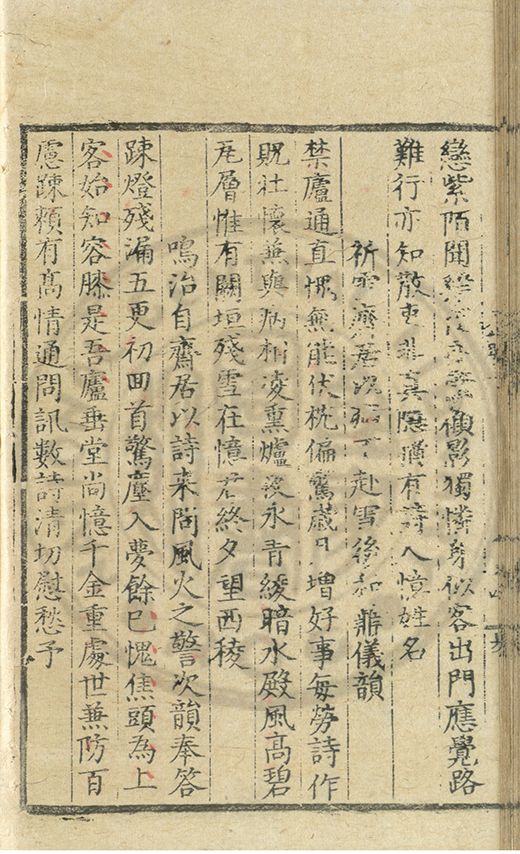 戀紫陌聞　　　　　　顧影獨憐身似客出門應覺路
難行亦知散吏非真隱猶有詩人憶姓名
祈雪齋居　　　　赴雪後和鼎儀韻
禁廬通直愧無能伏枕偏驚歲日增好事每勞詩作
既社懷兼與病相凌熏爐夜永青綾暗水殿風高碧
瓦層惟有闕垣殘雪在憶君終夕望西稜
鳴治自齋居以詩来問風火之警次韻奉答
踈燈殘漏五更初回首驚塵入夢餘已愧焦頭為上
客始知容膝是吾廬垂堂尚憶千金重處世兼防百
慮踈賴有髙情通問訊數詩清切慰愁予